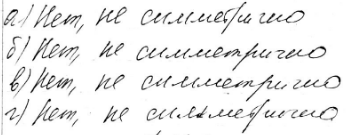 а) Нет, не симметрично
б) Нет, не симметрично
в) Нет, не симметрично
г) Нет, не симметрично